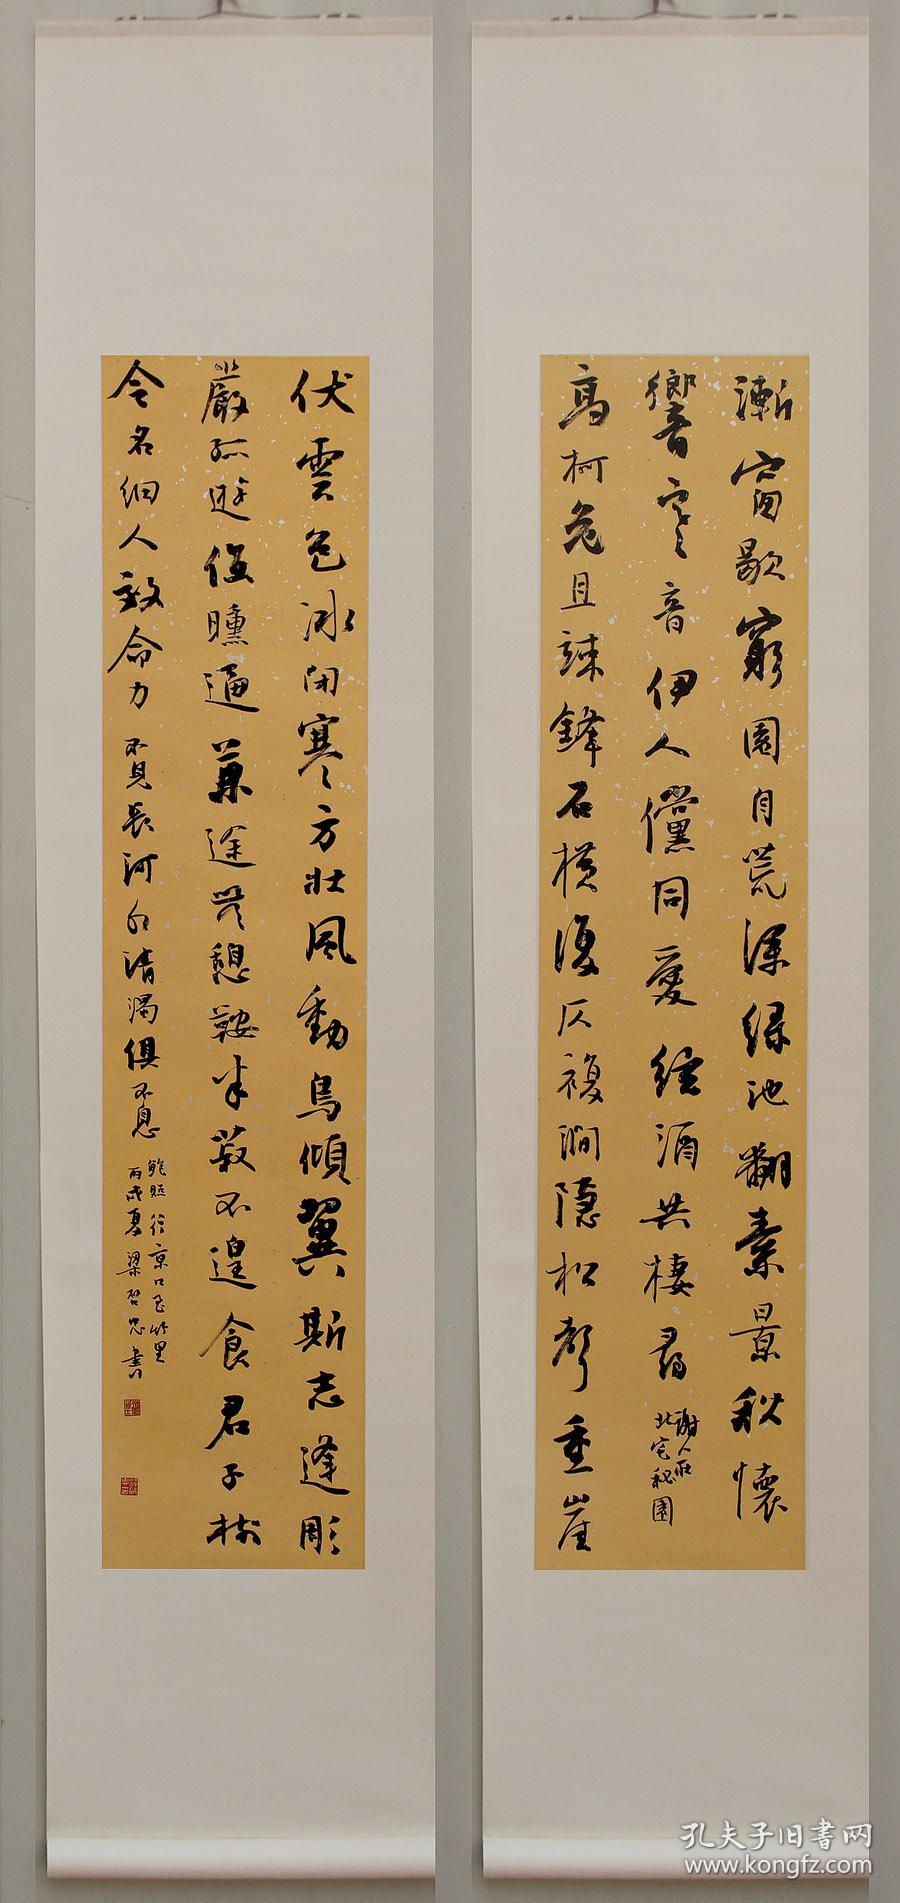 漸窗歇窮園自荒深綠池翻素景秋懷
響寒音伊人儻同愛絃酒共棲尋
謝莊
北宅秘園
高柯危且竦鋒石橫復仄複澗隱松聲重崖
伏雲色冰閉寒方壯風動鳥傾翼斯志逢彫
嚴孤遊值曛逼兼途無憩鞍半菽不遑食君子樹
令名細人效命力不見長河水清濁俱不息
鮑照行京口至竹里
丙戌夏梁書
孔夫子旧書网
www.kongfz.com